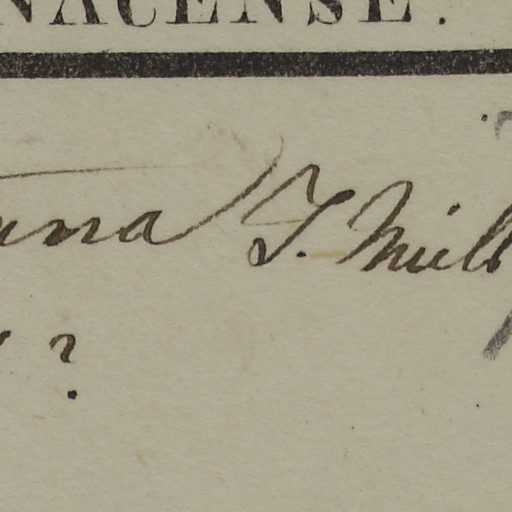 NACENSE.
una T. Mill
?